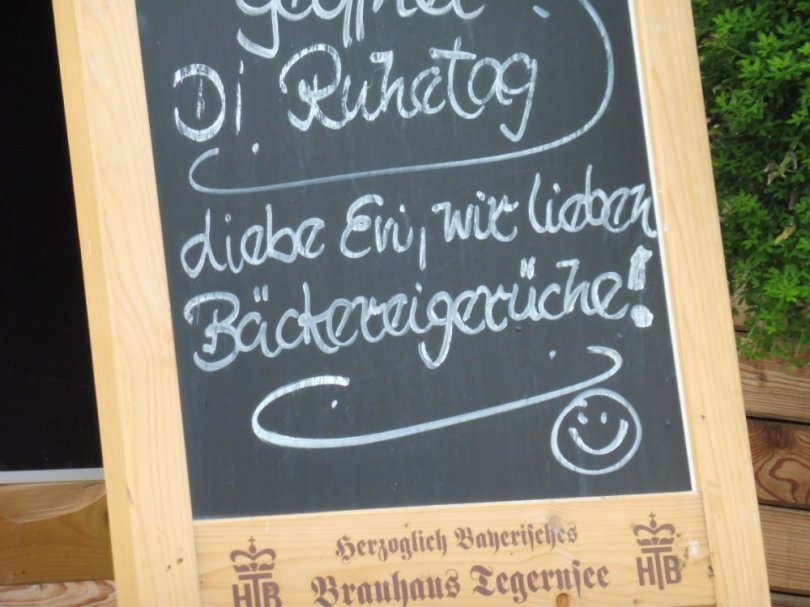 geöffnet
Di Ruhetag
Liebe Evi, wir lieben
Bäckereigerüche!
Herzoglich Bayerisches
Brauhaus Tegernsee
HTB
HTB